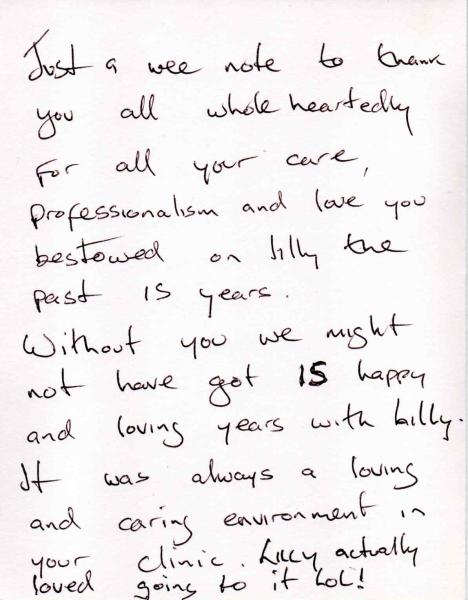 Just a wee note to thank
you all whole heartedly
For all your care,
professionalism and love you
bestowed on lilly the
past 15 years.
Without you we might
not have got 15 happy
and loving years with Lilly.
It was always a loving
and caring environment in
your clinic. Lilly actually
loved going to it LoL!